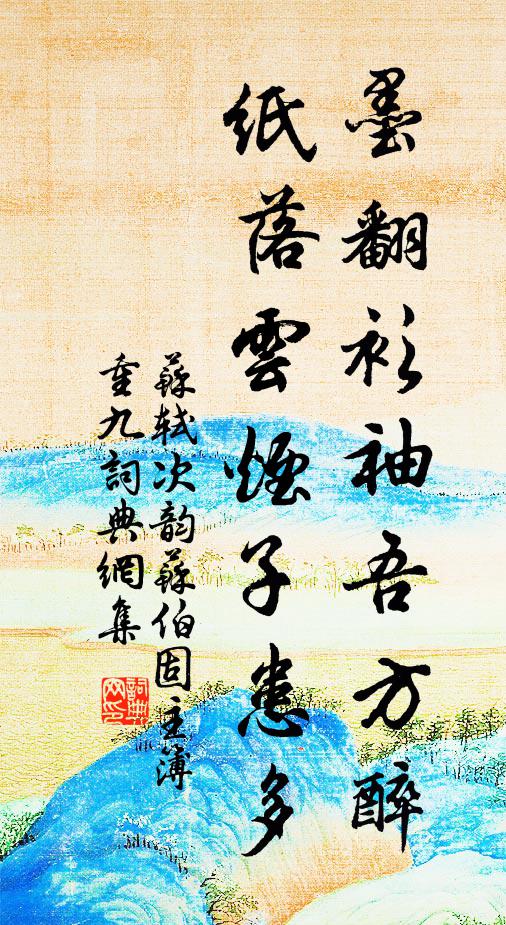 墨翻衫袖吾方醉
紙落雲煙子患多
蘇軾次韵蘇伯固主簿
重九詞典網集
詞典
网印